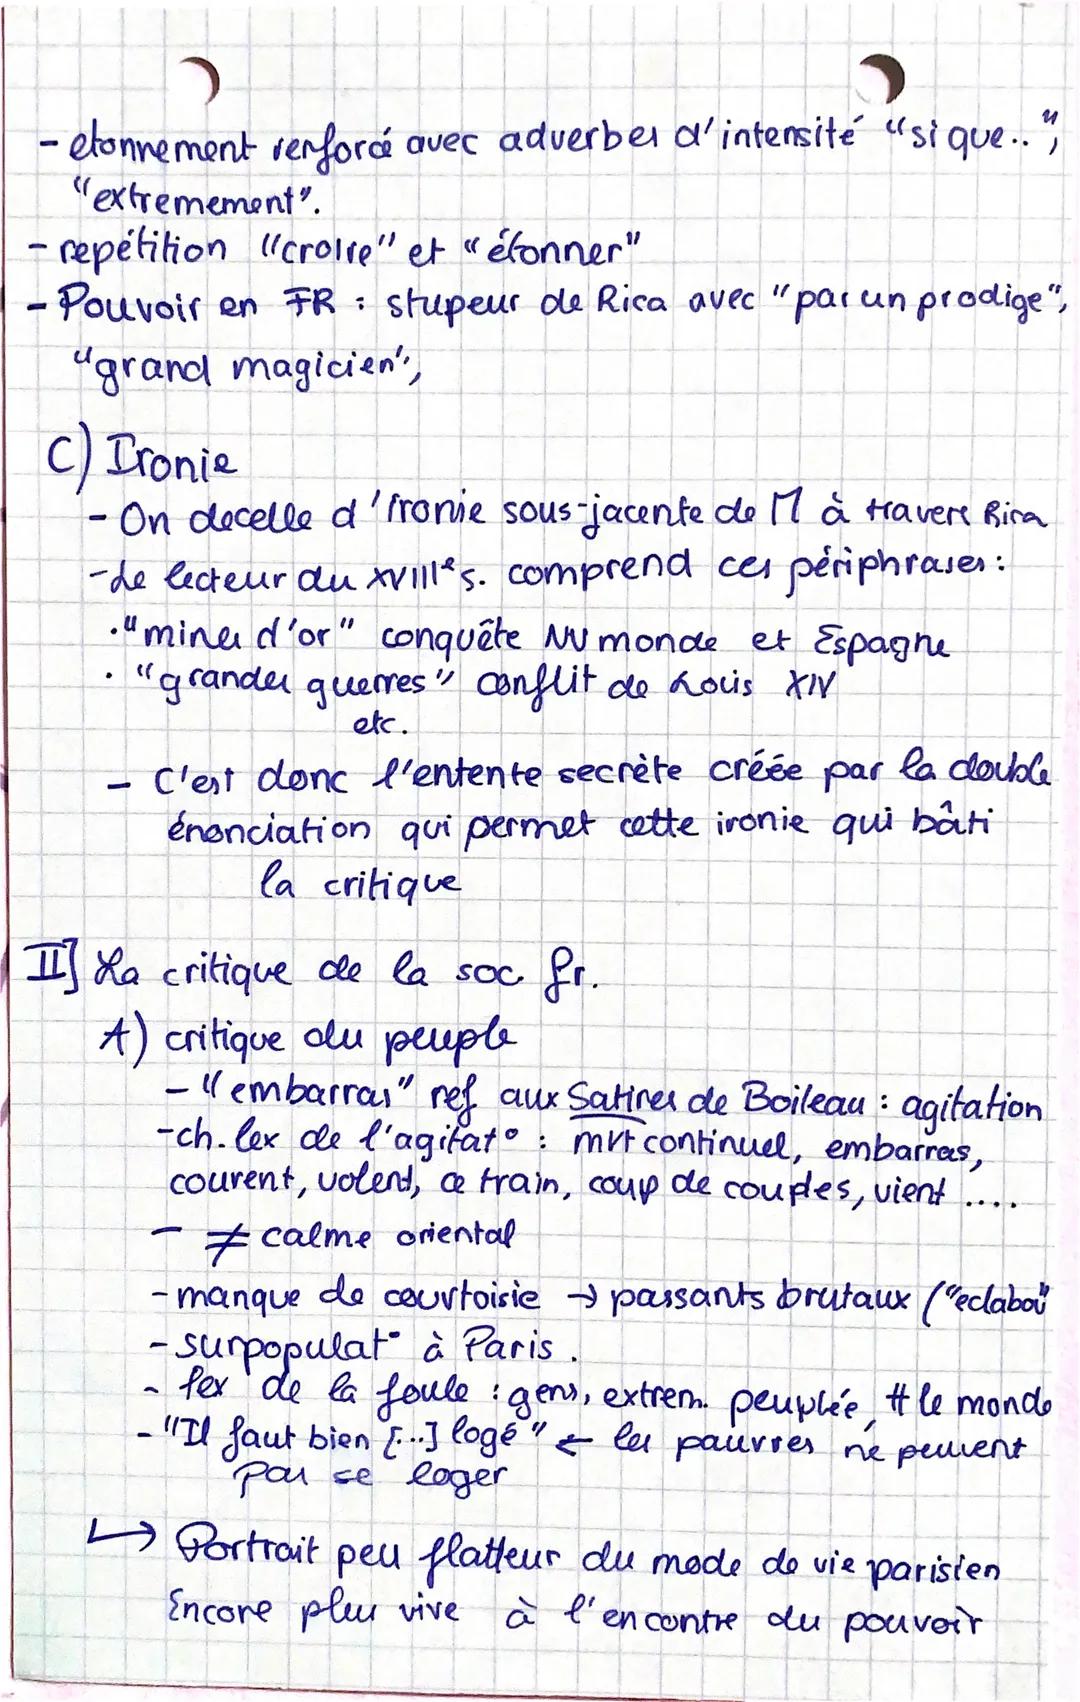 - etonnement renforcé avec adverbes d'intensité "si que..",
"extremement".
- repétition "croire" et "étonner"
- Pouvoir en FR : stupeur de Rica avec "par un prodige",
"grand magicien",
C) Ironie
- On decelle d'ironie sous-jacente de M à travers Rica
- Le lecteur du XVIIIe s. comprend ces périphrases :
• "mines d'or" conquête NV monde et Espagne
• "grandes guerres" conflit de Louis XIV
etc.
- C'est donc l'entente secrète créée par la double
énonciation qui permet cette ironie qui bâti
la critique
II] La critique de la soc fr.
A) critique du peuple
- "embarras" ref aux Satires de Boileau : agitation
- ch. lex de l'agitat° : mvt continuel, embarras,
courent, volent, ce train, coup de coudes, vient ....
- ≠ calme oriental
- manque de courtoisie → passants brutaux ("eclabou"
- surpopulat° à Paris.
- lex de la foule : gens, extrem. peuplée, tt le monde
- "Il faut bien [...] logé" ← les pauvres ne peuvent
pas se loger
↳ Portrait peu flatteur du mode de vie parisien
Encore plus vive à l'encontre du pouvoir